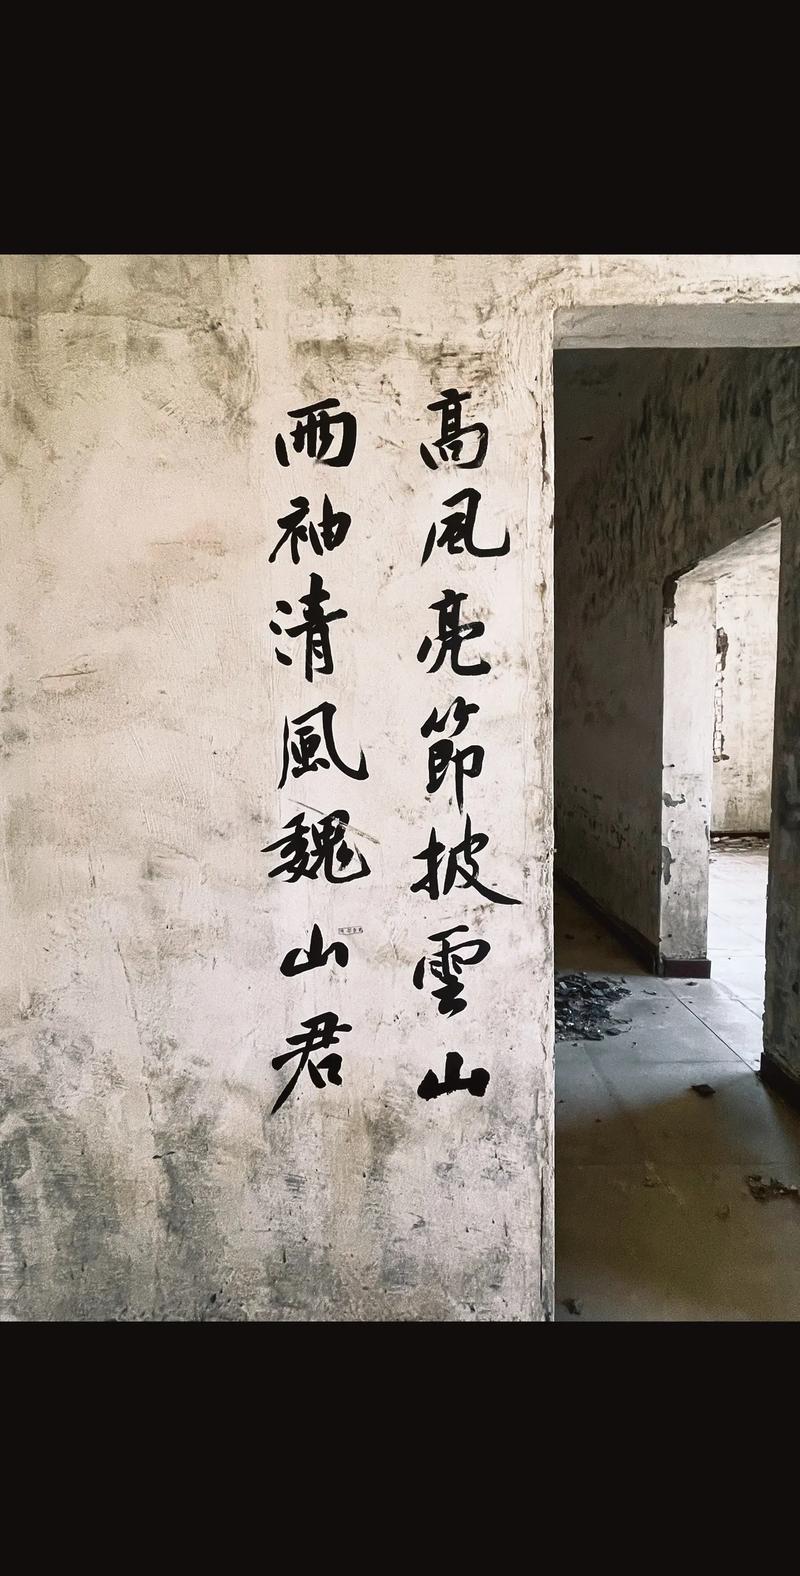 高風亮節披雲山
兩袖清風魏山君